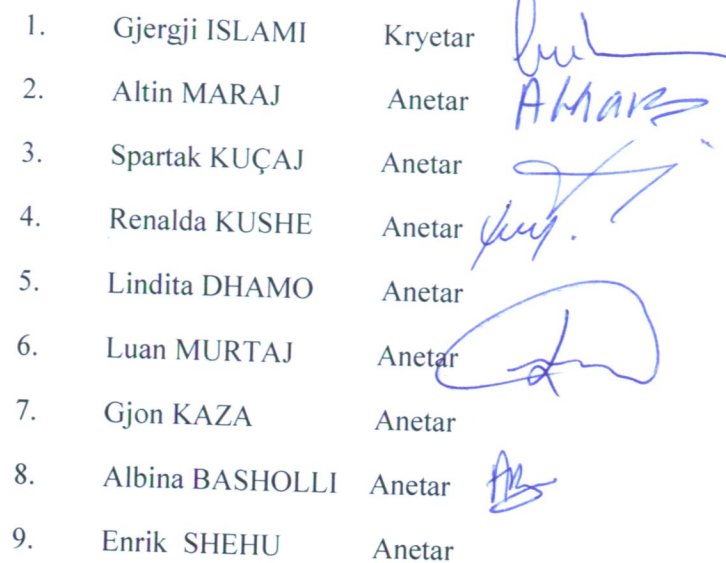 1. Gjergji ISLAMI Kryetar
2. Altin MARAJ Anetar
3. Spartak KUÇAJ Anetar
4. Renalda KUSHE Anetar
5. Lindita DHAMO Anetar
6. Luan MURTAJ Anetar
7. Gjon KAZA Anetar
8. Albina BASHOLLI Anetar
9. Enrik SHEHU Anetar